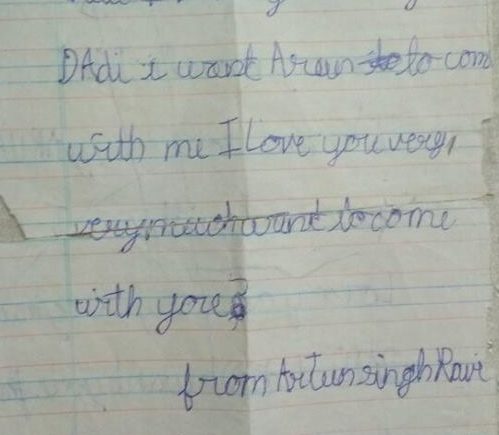 DAdi i want Arun to com
with me I Love you very,
very much want to come
with you
from Artun singh Ravi